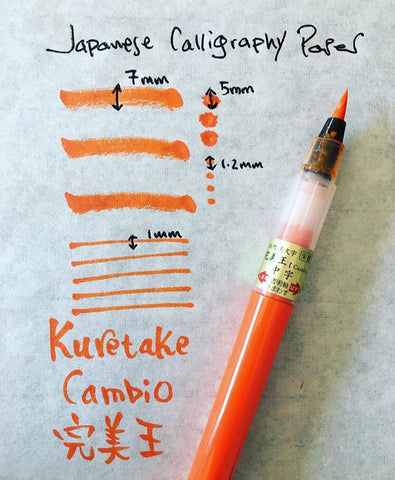 Japanese Calligraphy Paper
7mm
5mm
1.2mm
1mm
Kuretake
Cambio
完美王
完美王
中字